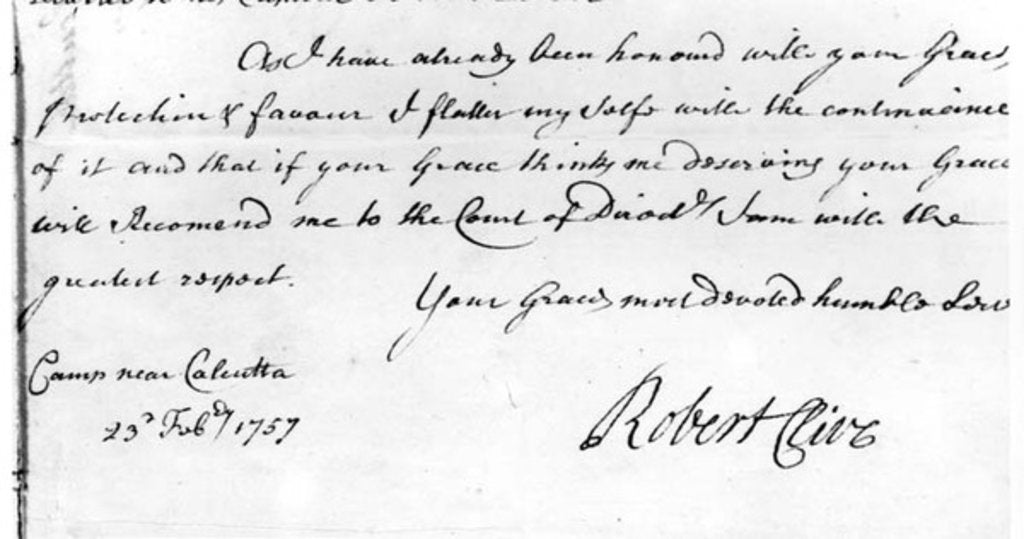 As I have already been honourd with your Graces
Protection & favour I flatter my Selfe with the continuance
of it and that if your Grace thinks me deserving your Grace
will Recomend me to the Court of Direct.rs I am with the
greatest respect.
Your Graces most devoted humble Serv
Camp near Calcutta
23d Feb.ry 1757
Robert Clive